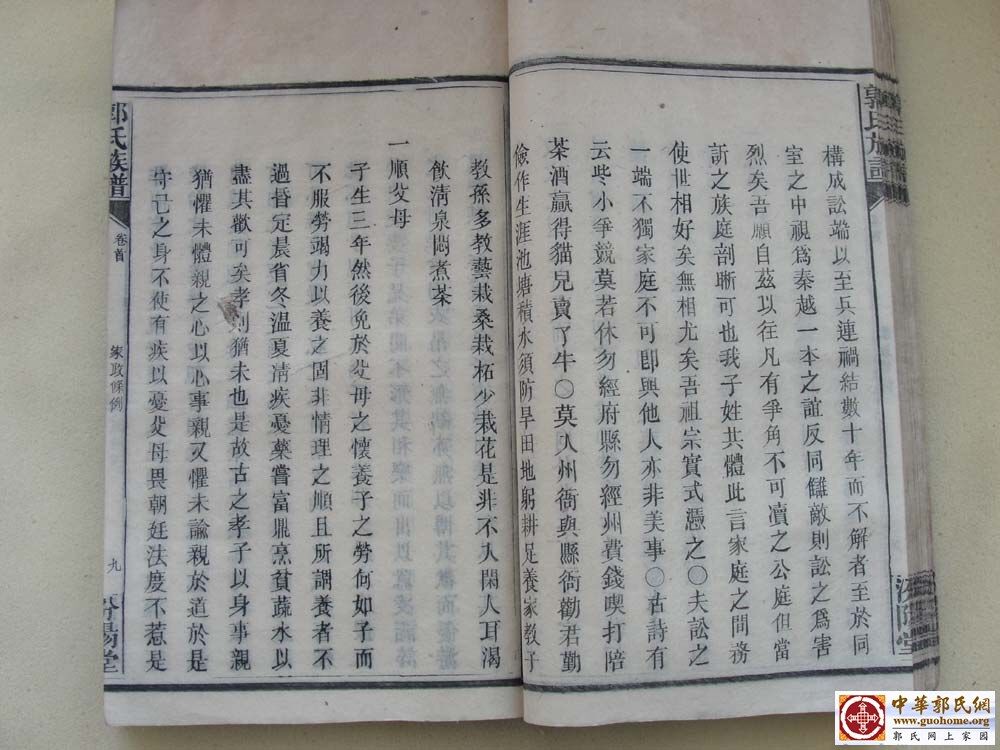 郭氏族譜
汾陽堂
構成訟端以至兵連禍結數十年而不解者至於同
室之中視爲秦越一本之誼反同雠敵則訟之爲害
烈矣吾願自茲以往凡有爭角不可凟之公庭但當
訴之族庭剖晰可也我子姓共體此言家庭之間務
使世相好矣無相尤矣吾祖宗實式憑之〇夫訟之
一端不獨家庭不可卽與他人亦非美事〇古詩有
云些小爭競莫若休勿經府縣勿經州費錢喫打陪
茶酒贏得貓兒賣了牛〇莫入州衙與縣衙勸君勤
儉作生涯池塘積水須防旱田地躬耕足養家教子
教孫多教藝栽桑栽柘少栽花是非不入閑人耳渴
飲清泉悶煮茶
一順父母
子生三年然後免於父母之懷養子之勞何如子而
不服勞竭力以養之固非情理之順且所謂養者不
過昏定晨省冬溫夏凊疾憂藥嘗富鼎烹貧蔬水以
盡其歡可矣孝則猶未也是故古之孝子以身事親
猶懼未體親之心以心事親又懼未諭親於道於是
守己之身不使有疾以憂父母畏朝廷法度不惹是
郭氏族譜
卷首
家政條例
九
汾陽堂
中華郭氏網
www.guohome.org
郭氏网上家园